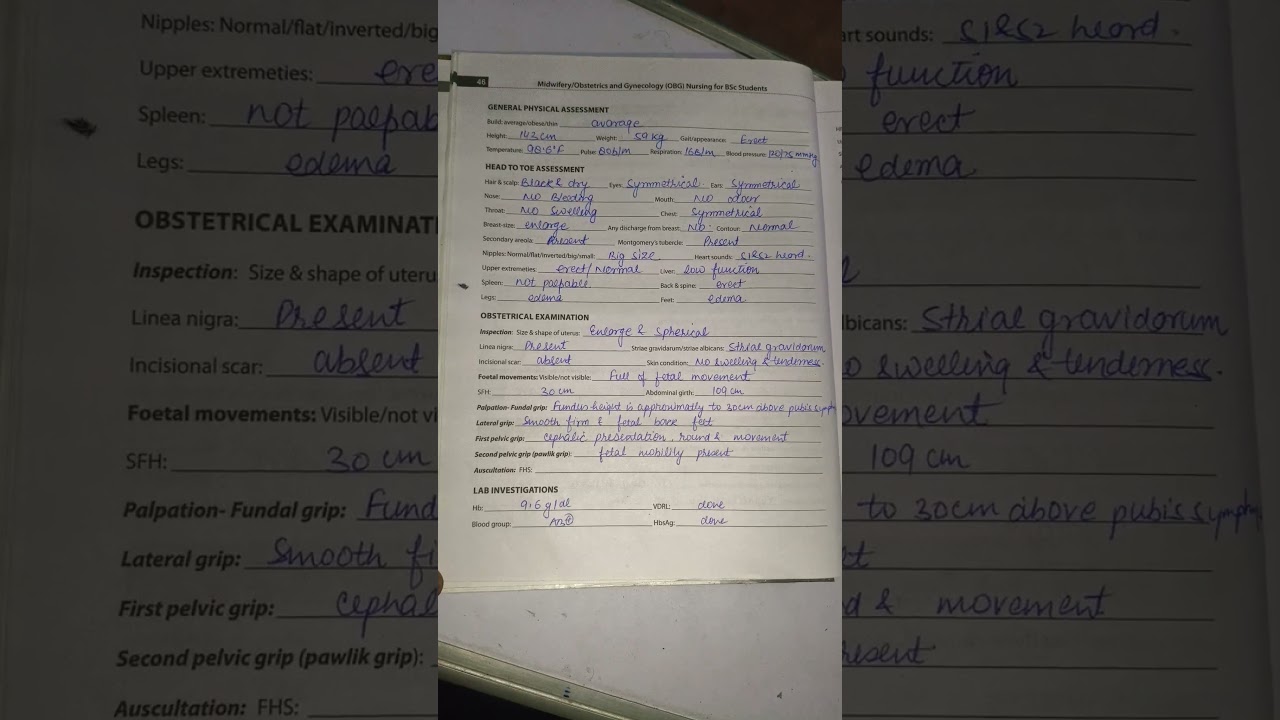 46
Midwifery/Obstetrics and Gynecology (OBG) Nursing for BSc Students
GENERAL PHYSICAL ASSESSMENT
Build: average/obese/thin avarage
Height: 142 cm Weight: 59 kg Gait/appearance: Erect
Temperature: 98.6°F Pulse: 80b/m Respiration: 16B/m Blood pressure: 120/75 mmHg
HEAD TO TOE ASSESSMENT
Hair & scalp: Black & dry Eyes: Symmetrical Ears: Symmetrical
Nose: NO Bleeding Mouth: NO odour
Throat: NO Swelling Chest: Symmetrical
Breast-size: enlarge Any discharge from breast: NO. Contour: Normal
Secondary areola: Present Montgomery's tubercle: Present
Nipples: Normal/flat/inverted/big/small: Big size Heart sounds: S1&S2 heard.
Upper extremeties: erect/Normal Liver: low function
Spleen: not palpable Back & spine: erect
Legs: edema Feet: edema
OBSTETRICAL EXAMINATION
Inspection: Size & shape of uterus: Enlarge & spherical
Linea nigra: Present Striae gravidarum/striae albicans: Strial gravidorum
Incisional scar: absent Skin condition: No swelling & tenderness.
Foetal movements: Visible/not visible: Full of fetal movement
SFH: 30 cm Abdominal girth: 109 cm
Palpation- Fundal grip: Fundus height is approximatly to 30cm above pubis symph
Lateral grip: Smooth firm & fetal back felt
First pelvic grip: cephalic presentation, round & movement
Second pelvic grip (pawlik grip): fetal mobility present
Auscultation: FHS:
LAB INVESTIGATIONS
Hb: 9.6 g/dl VDRL: done
Blood group: AB⊕ HbsAg: done